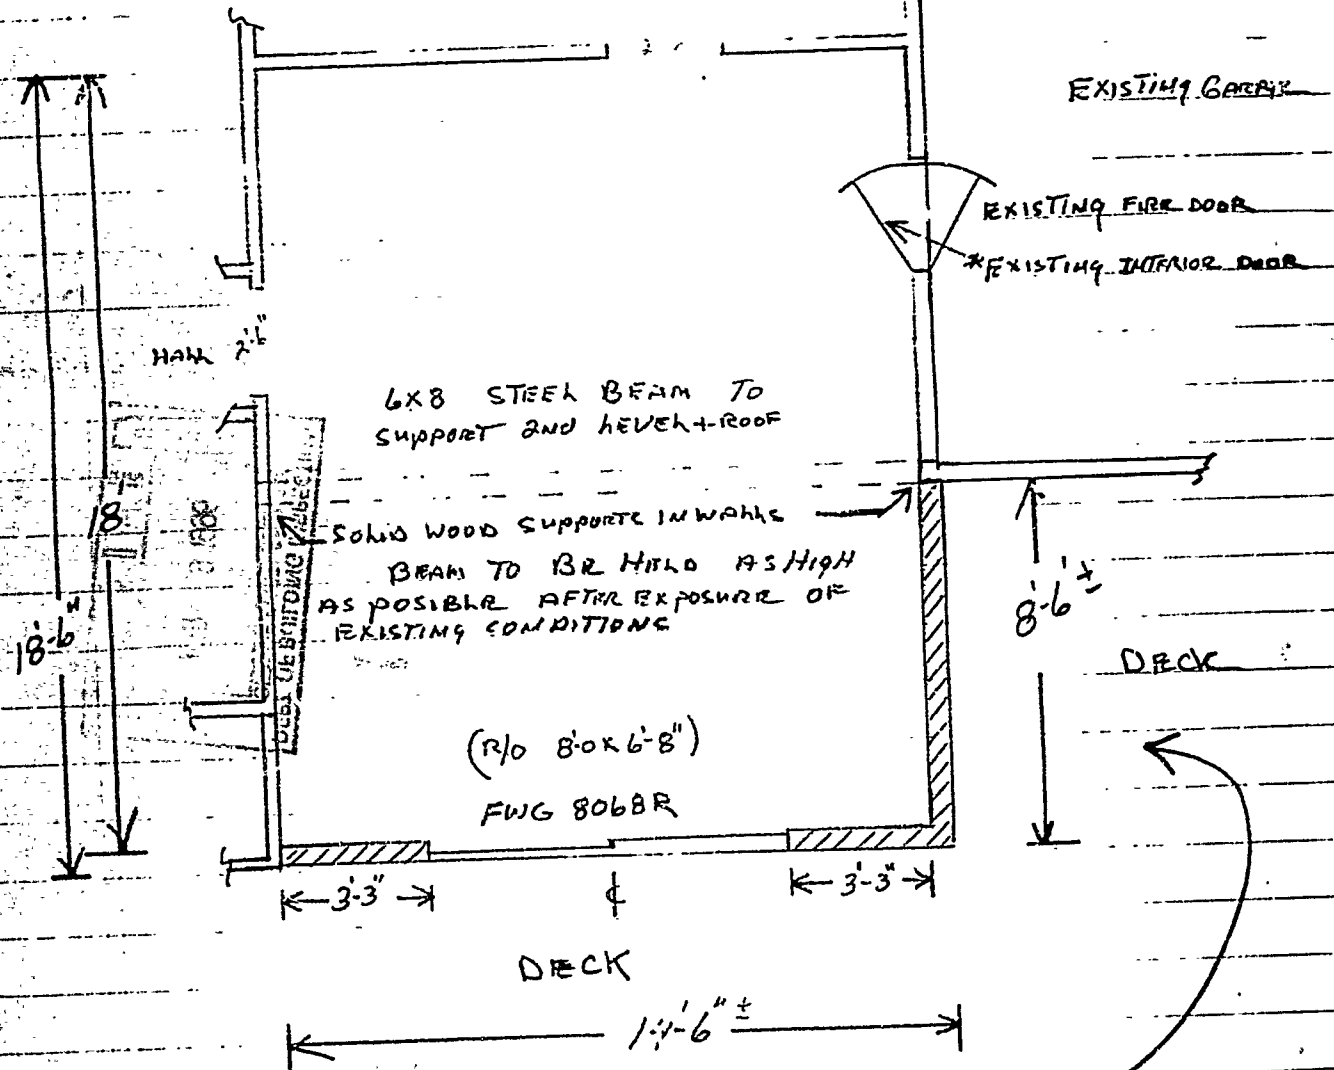 EXISTING GARAGE
EXISTING FIRE DOOR
*EXISTING INTERIOR DOOR
HALL 2'-6"
6X8 STEEL BEAM TO
SUPPORT 2ND LEVEL + ROOF
SOLID WOOD SUPPORTS IN WALLS
BEAM TO BE HELD AS HIGH
AS POSIBLE AFTER EXPOSURE OF
EXISTING CONDITIONS
18'-6"
18'-
8'-6' ±
DECK
(R/O 8'-0 X 6'-8")
FWG 8068R
3'-3"
℄
3'-3"
DECK
14'-6" ±